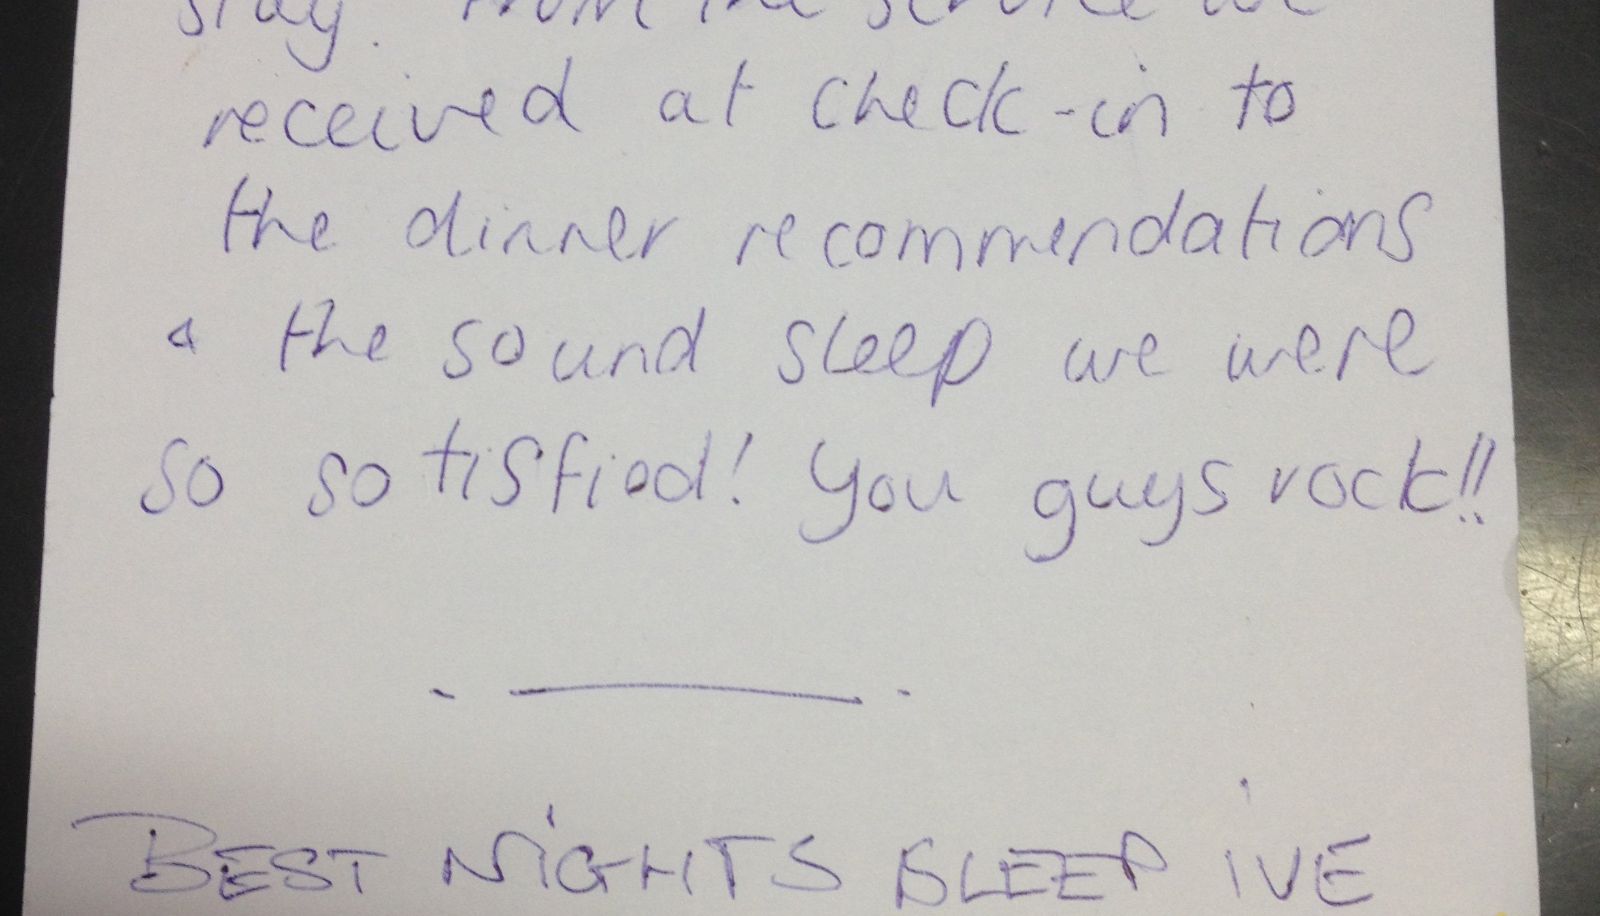 stay. From the service we
received at check-in to
the dinner recommendations
& the sound sleep we were
so sotisfied! You guys rock!!
BEST NiGHTS SLEEP iVE